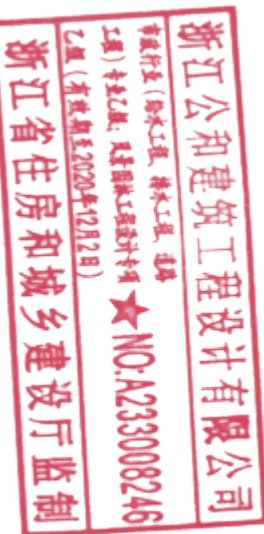 浙江公和建筑工程设计有限公司
市政行业（给水工程、排水工程、道路
工程）专业乙级；风景园林工程设计专项
乙级（有效期至2020年12月2日）
★ NO:A233008246
浙江省住房和城乡建设厅监制